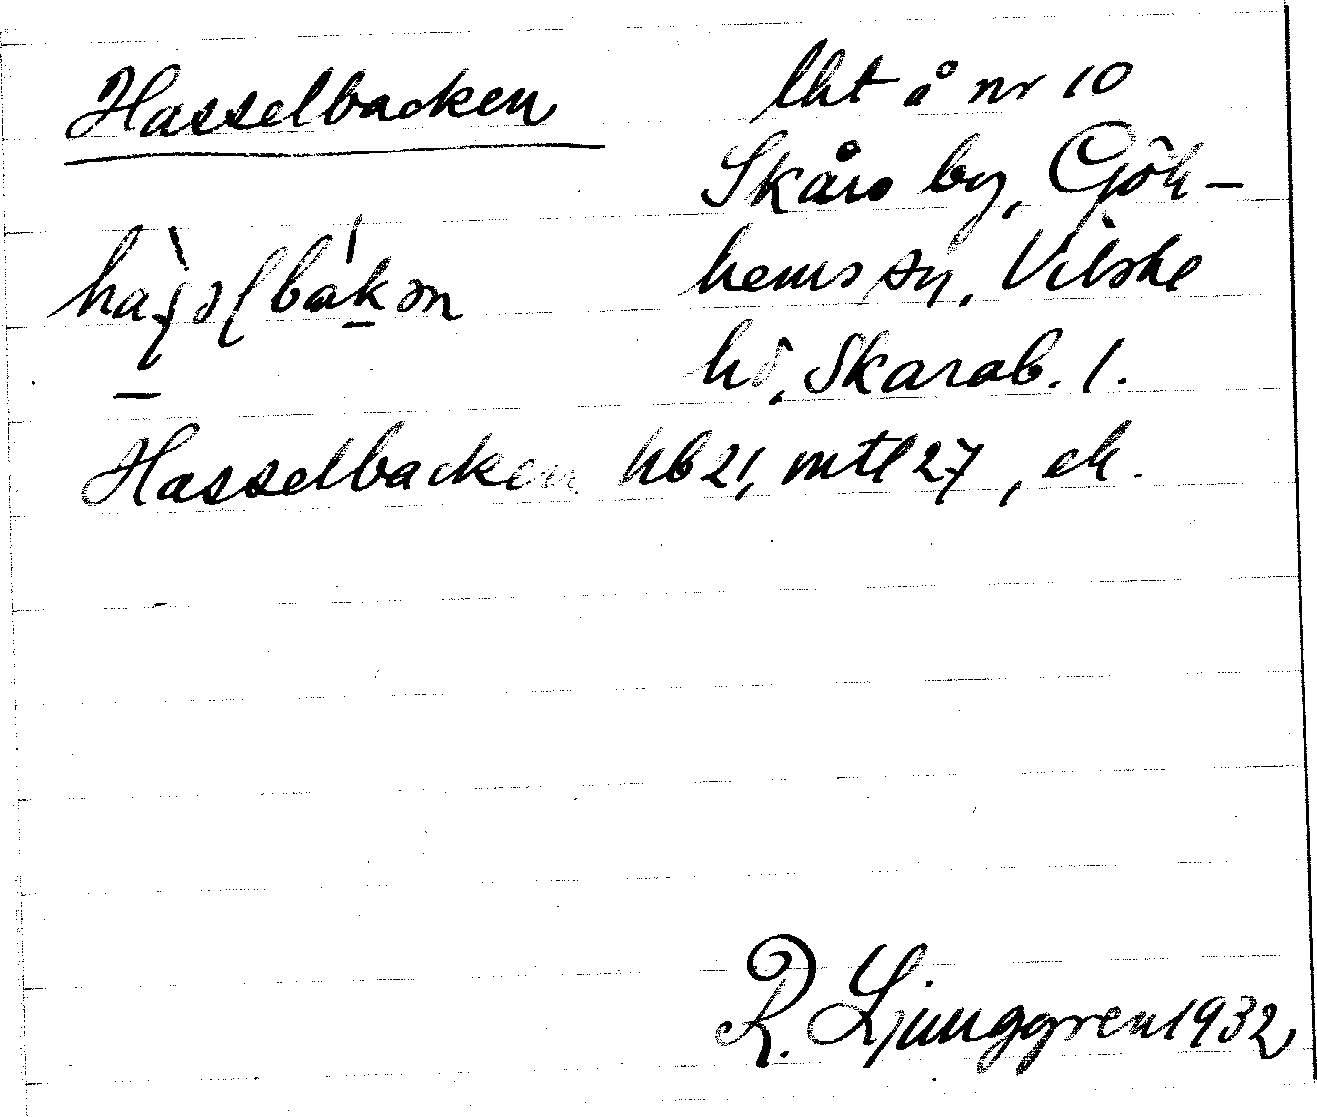 Hasselbacken
lht å nr 10
Skårs by, Gök-
hems sn, Vilske
hd, Skarab. l.
Hasselbacken hb 21, mtl 27, ek.
R. Ljunggren 1932